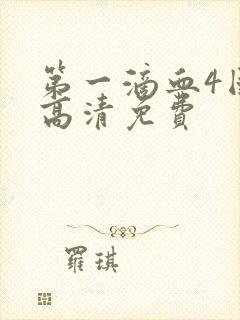 第一滴血4国
高清免费
羅琪